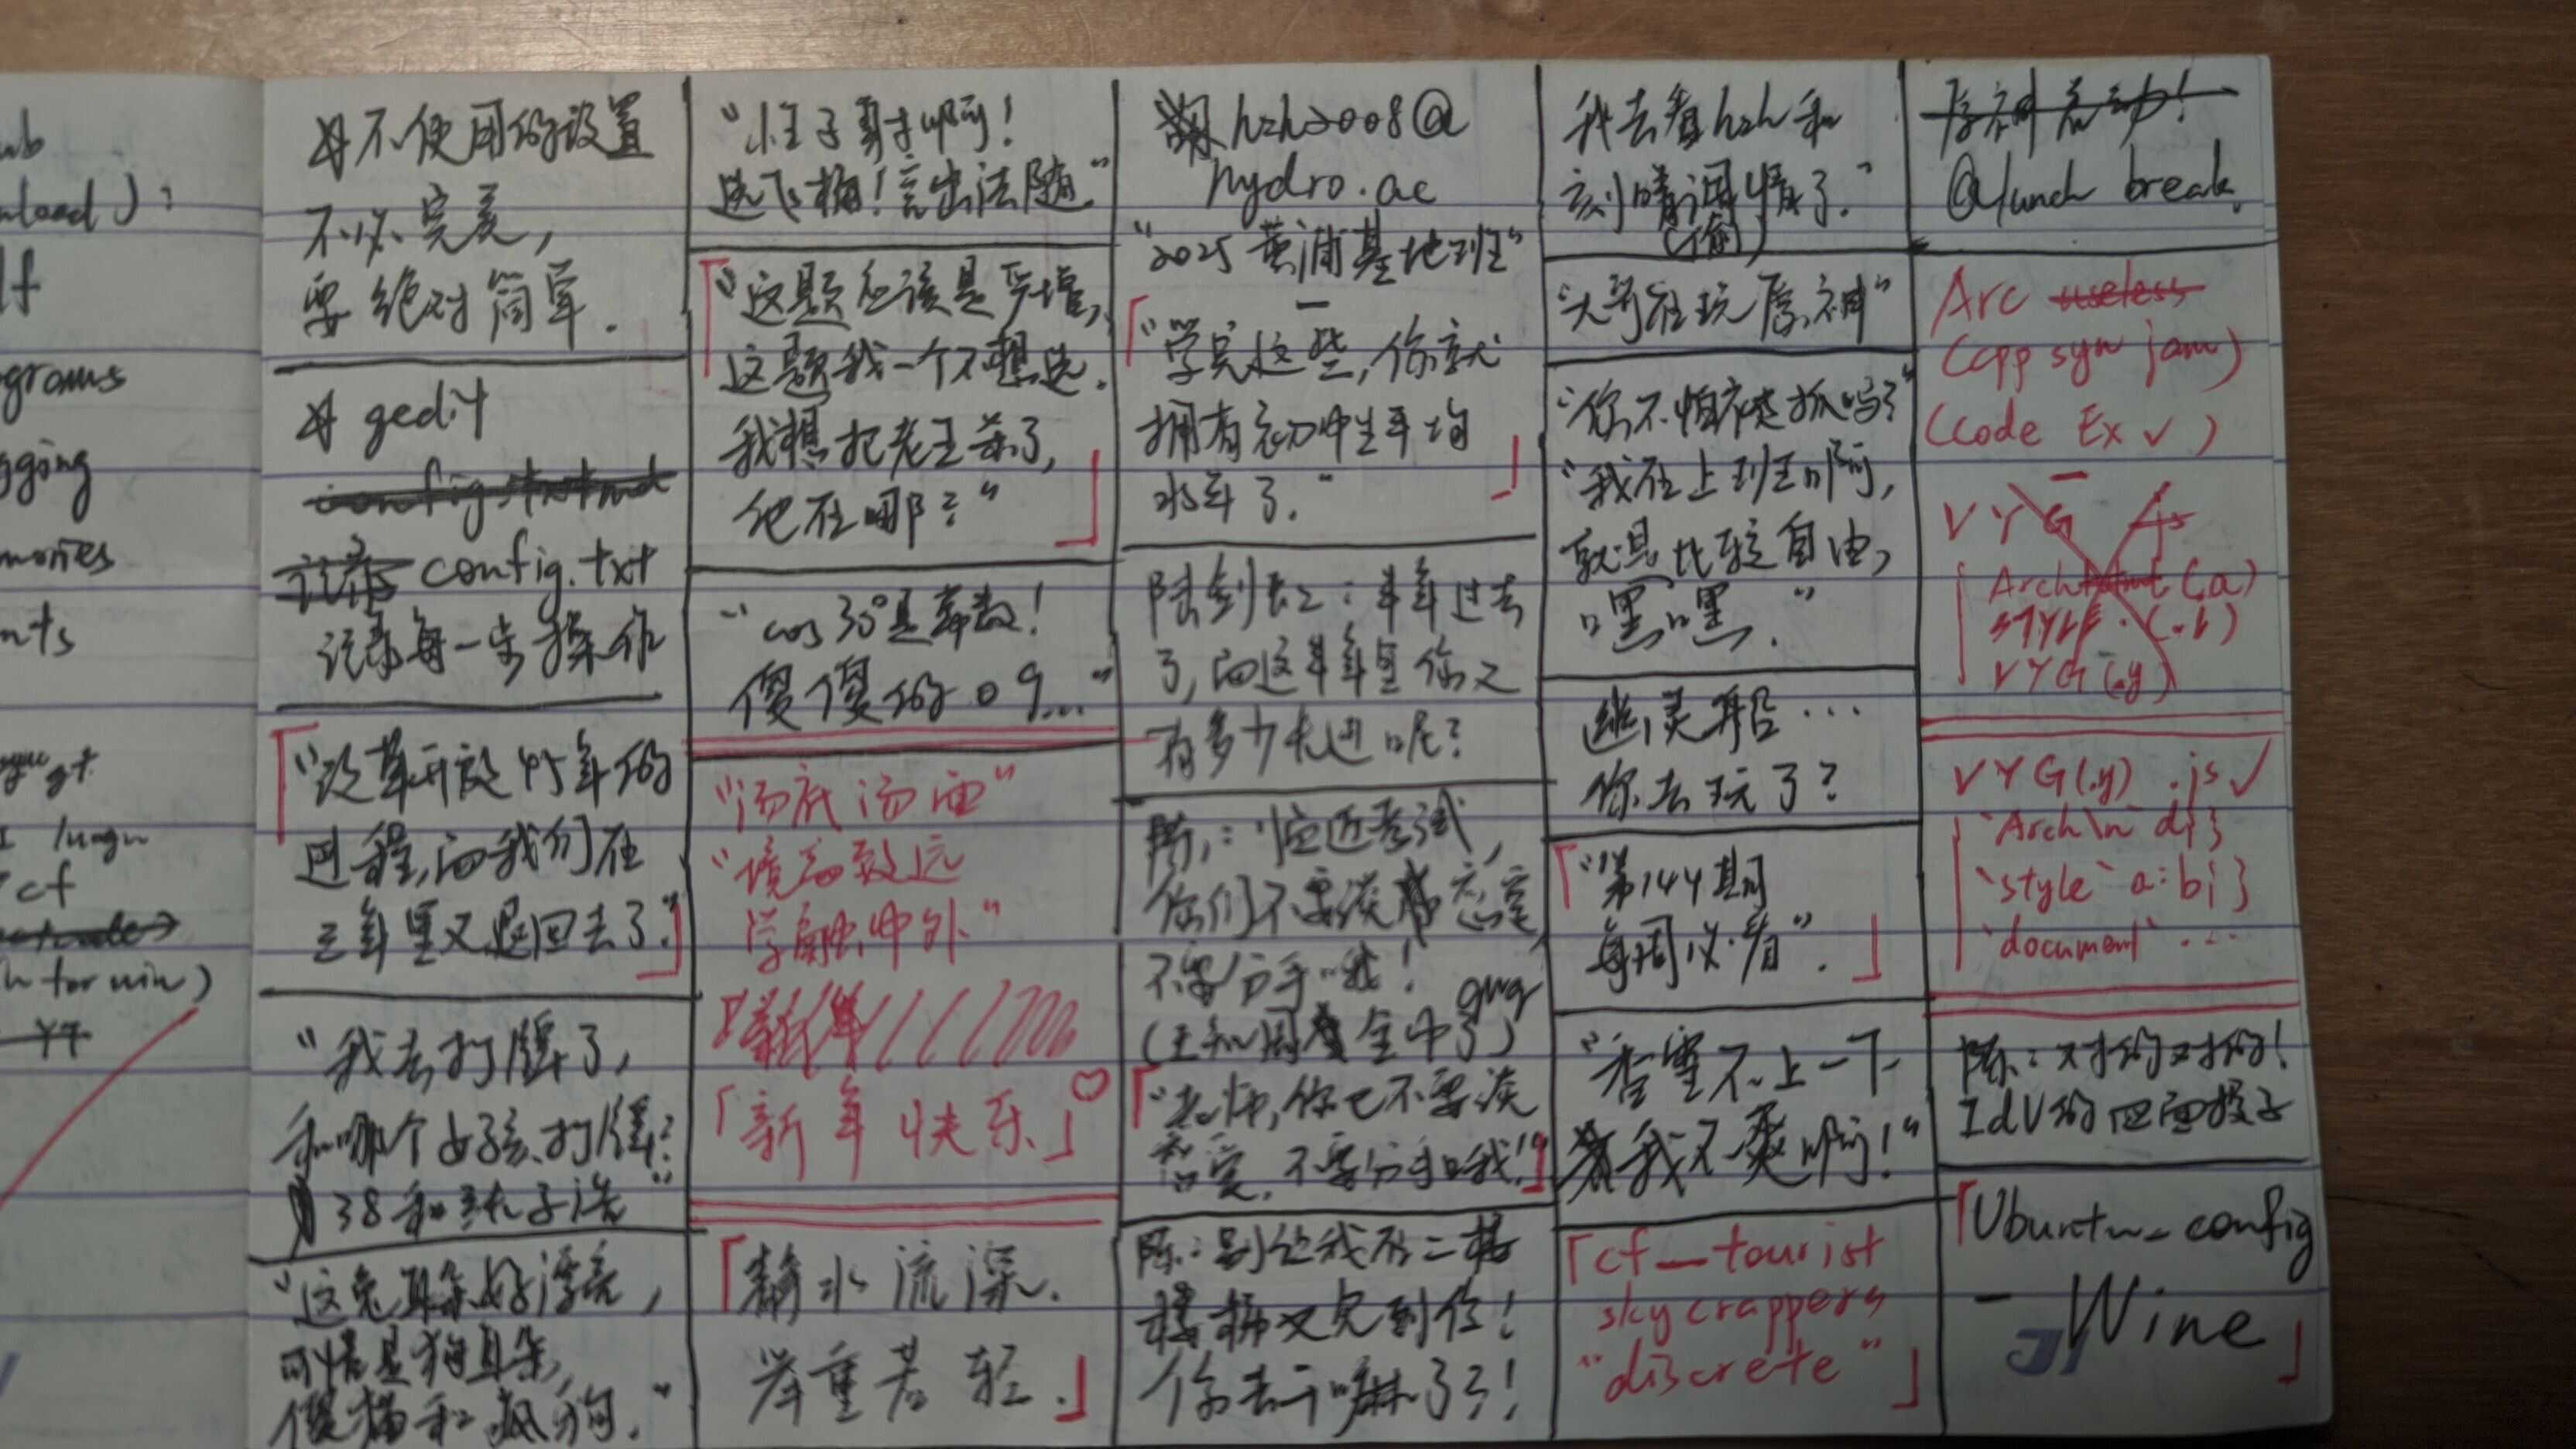 nload):
lf
grams
gging
mories
nts
cf
h for win)
不使用的设置
不必完美，
要绝对简单.
gedit
config.txt
记录每一步操作
“改革开放45年的
过程,而我们在
三年里又退回去了.”
“我去打牌了,
和哪个女孩打牌?
38和
“这兔耳朵好漂亮,
可惜是狗耳朵,
傻猫和疯狗.”
选飞梅!言出法随”
“这题应该是严增,
这题我一个不想选.
我想把老王杀了,
他在哪?”
“cos30°是常数!
傻傻的09...”
“汤底汤面”
“境高致远
学融中外”
「新年快乐」♡
「静水流深.
举重若轻.」
hzh2008@
hydro.ac
“2025黄浦基地班”
「“学完这些,你就
拥有初中生平均
水平了.”」
陆剑长:半年过去
了,而这半年里你又
有多少长进呢?
陈:临近考试,
你们不要谈恋爱,
不要分手哦!
qwq
“老师,你也不要谈
恋爱,不要分手哦!”」
陈:别让我在二楼
楼梯又见到你!
你去干嘛了?!
我去看hzh和
刻晴调情了.”
(偷)
“大哥在玩原神”
“你不怕被抓吗?”
“我在上班啊,
就是比较自由,
嘿嘿.”
你去玩了?
「“第144期
每周必看”.」
“希望不上一下
我不爽啊!”
「cf_tourist
skycrappers
“discrete”」
原神启动!
@lunch break.
Arc useless
(cpp syn jam)
(Code Ex ✓)
VYG Js
Arch (a)
STYLE.(.b)
VYG(.y)
VYG(.y) .js ✓
`Arch\n di}
`style` a:b;}
`document` ...
陈:对的对的!
IdV的四面骰子
「Ubuntu_config
- Wine」